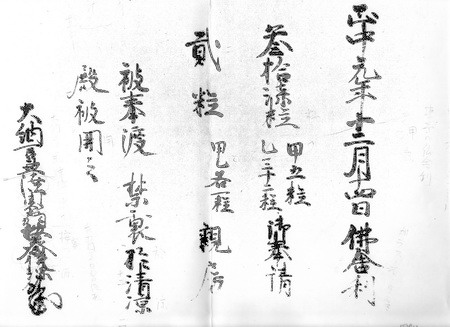 正中元年十二月十四日佛舎利
叁拾漆粒 甲五粒
乙三十二粒 御奉請
貳粒 甲各粒 親房
被奉渡 禁裏於清涼
殿被開之
大納言兼